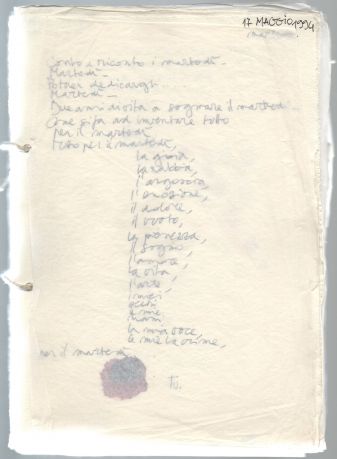 17 MAGGIO 1994
Conto e riconto i martedì –
Martedì –
Poter dedicargli...
Martedì –
Due anni di vita a sognare il martedì –
Come si fa ad inventare tutto
per il martedì
Tutto per il martedì,
la gioia,
la rabbia,
l'angoscia,
l'emozione,
il dolore,
il vuoto,
la pienezza,
il sogno,
l'amore,
la vita,
l'arte,
i miei
occhi
le mie
mani
la mia voce,
le mie lacrime,
per il martedì
Tu.